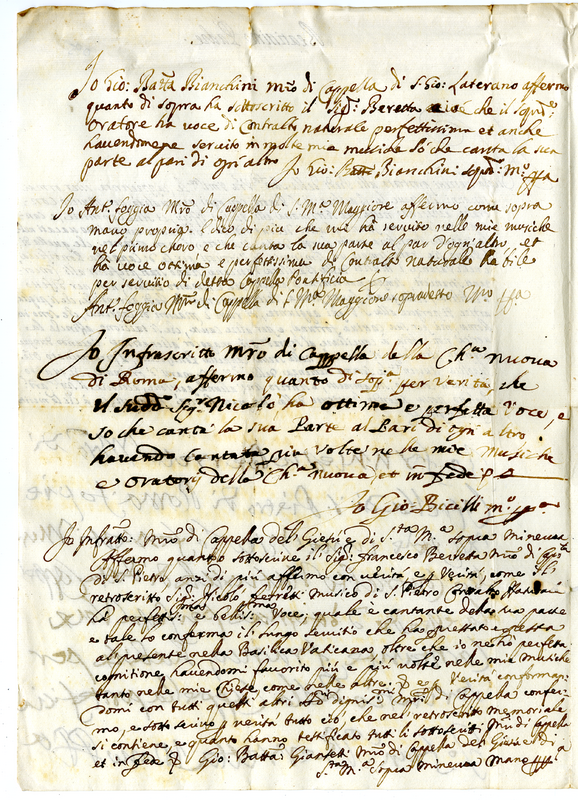 Io Gio: Batta Bianchini Mro di Cappella di S. Gio: Laterano affermo
quanto di sopra ha sottoscritto il Sigr: Beretta che il sopr:
oratore ha voce di Contralto naturale perfettissima et anche
havendomene servito in molte mie musiche só che canta la sua
parte al pari di ogni altro Io Gio: Batta Bianchini
Io Ant. foggia Mro di Capella di S. Ma Maggiore affermo come sopra
mano propria. e dico di più che mi hà servito nelle mie musiche
nel primo choro e che canta la sua parte al par d'ogni altro, et
hà voce ottima e perfettissima di Contralto naturale habile
per servitio di detta Cappella Pontificia
Ant. foggia Mro di Cappella di S. Ma Maggiore sopradetto
Io Infrascritto Mro di Cappella della Cha nuova
di Roma, affermo quanto di sopa per verità che
il sudd. Sigr Nicolo ha ottima e perfetta voce, e
so che canta la sua Parte al Pari di ogni altro
havendo cantato piu volte nelle mie Musiche
e oratorij della Cha nuova, et in fede
Io Gio: Bicilli
Io Infratto: Mro: di Cappella del Giesù e di S. Ma sopra Minerva
affermo quanto sottoscrive il Sigr: Francesco Berretta Mro di
di S. Pietro, anzi di più affermo con verità, come il
retroscritto Sigr: Nicolo Musico di S. Pietro Contralto Naturale
hà perfettissima e bellissima Voce; quale è cantante della sua parte
e tale lo conferma il lungo servitio che hà prestato e presta
al presente nella Basilica Vaticana, oltre che io ne hò perfetta
cognitione havendomi favorito più e più volte nelle mie Musiche
tanto nelle mie Chiese, come nelle altre: e Verità conforman-
domi con tutti questi altri Mri: di Cappella confer-
mo, e sottoscrivo verità tutto ciò, che nel retroscritto Memoriale
si contiene, e quanto hanno testificato tutti li sottoscritti Mri: di Cappella
et in fede Gio: Batta: Giansetti Mro: di Cappella del Giesù e di
S. Ma sopra Minerva mano